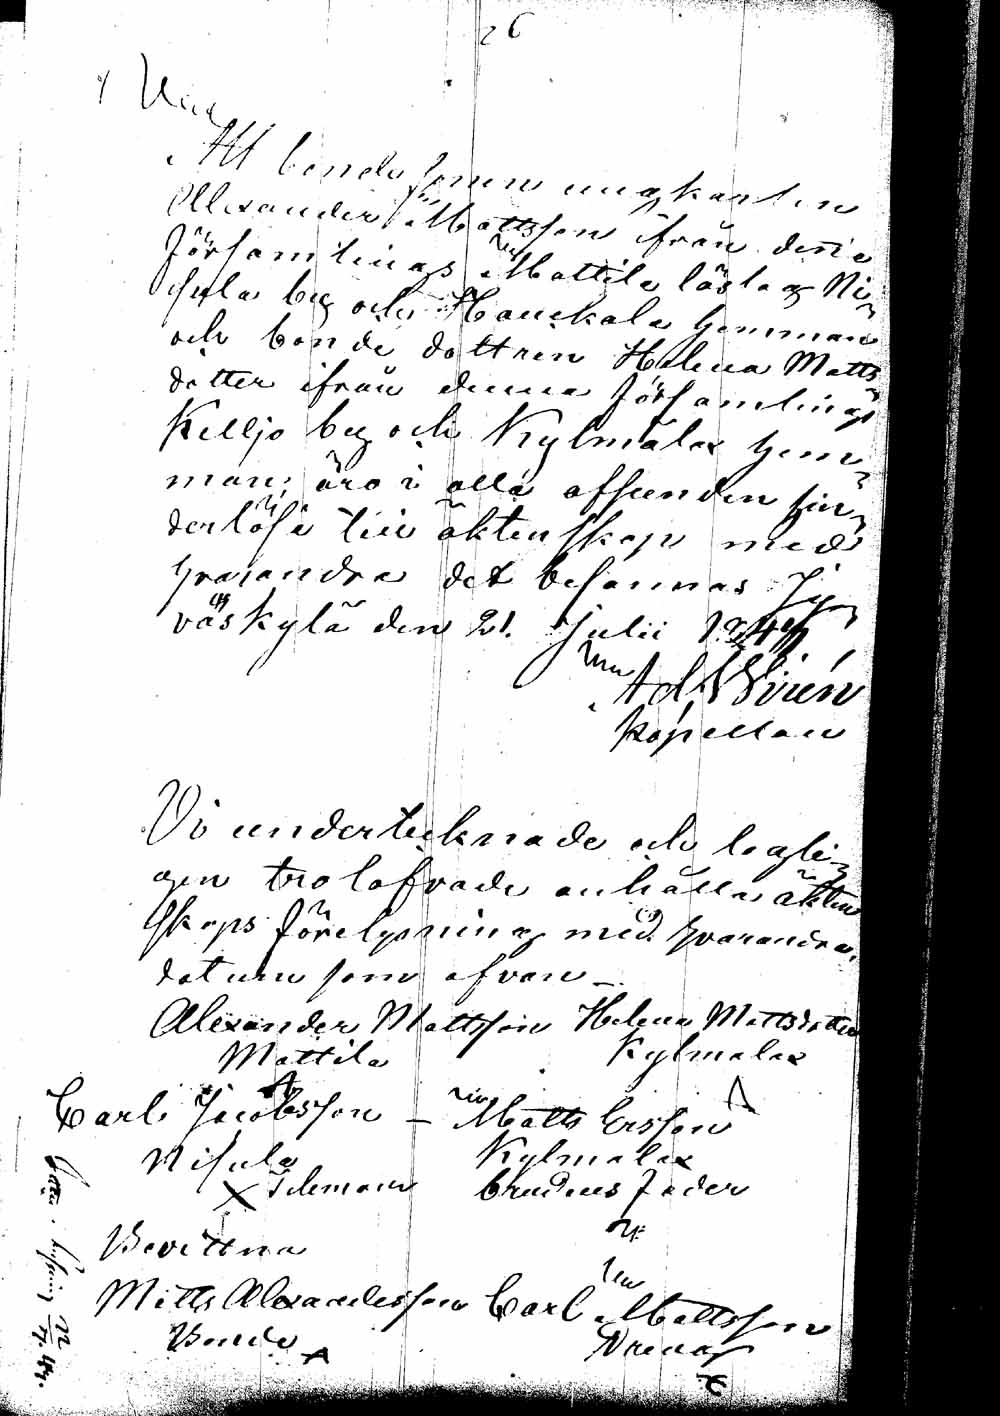 26
Att bonde sonen ungkarlen
Alexander Mattsson ifrån denna
församlings Mattila löslag Ni-
sula by och Hauskala hemman
och bonde dottren Helena Matts
dotter ifrån denna församlings
Keljo by och Kylmälax hem-
man, äro i alla afseenden hin-
derlösa till äktenskap med
hvarandra det besannas Jy-
väskylä den 21. Julii 1844
Ad. Wirén
Kapellan
Vi undertecknade och lagli-
gen trolofvade anhålla äkten
skaps förelysning med hvarandra,
datum som ofvan
Alexander Mattsson Helena Mattsdotter
Mattila Kylmalax
Carl Jacobsson – Matts Ersson
Nisula Kylmalax
brudens fader
Bevittna
Matts Alexandersson Carl Mattsson
Bonde Dreng